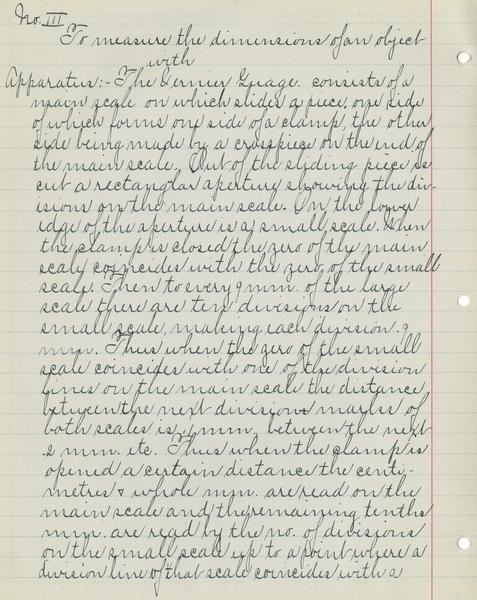 No. III
To measure the dimensions of an object
with
Apparatus:- The Vernier Guage consists of a
main scale on which slides a piece, one side
of which forms one side of a clamp, the other
side being made by a crosspiece on the end of
the main scale. Out of the sliding piece is
cut a rectanglar aperture showing the div-
isions on the main scale. On the lower
edge of the aperture is a small scale. When
the clamp is closed the zero of the main
scale coincides with the zero of the small
scale. Then to every 9 mm. of the large
scale there are ten divisions on the
small scale, making each division .9
mm. Thus when the zero of the small
scale coincides with one of the division
lines on the main scale the distance
between the next division marks of
both scales is .1 mm. between the next
.2 mm. etc. Thus when the clamp is
opened a certain distance the centi-
metres & whole mm. are read on the
main scale and the remaining tenths
mm. are read by the no. of divisions
on the small scale up to a point where a
division line of that scale coincides with a